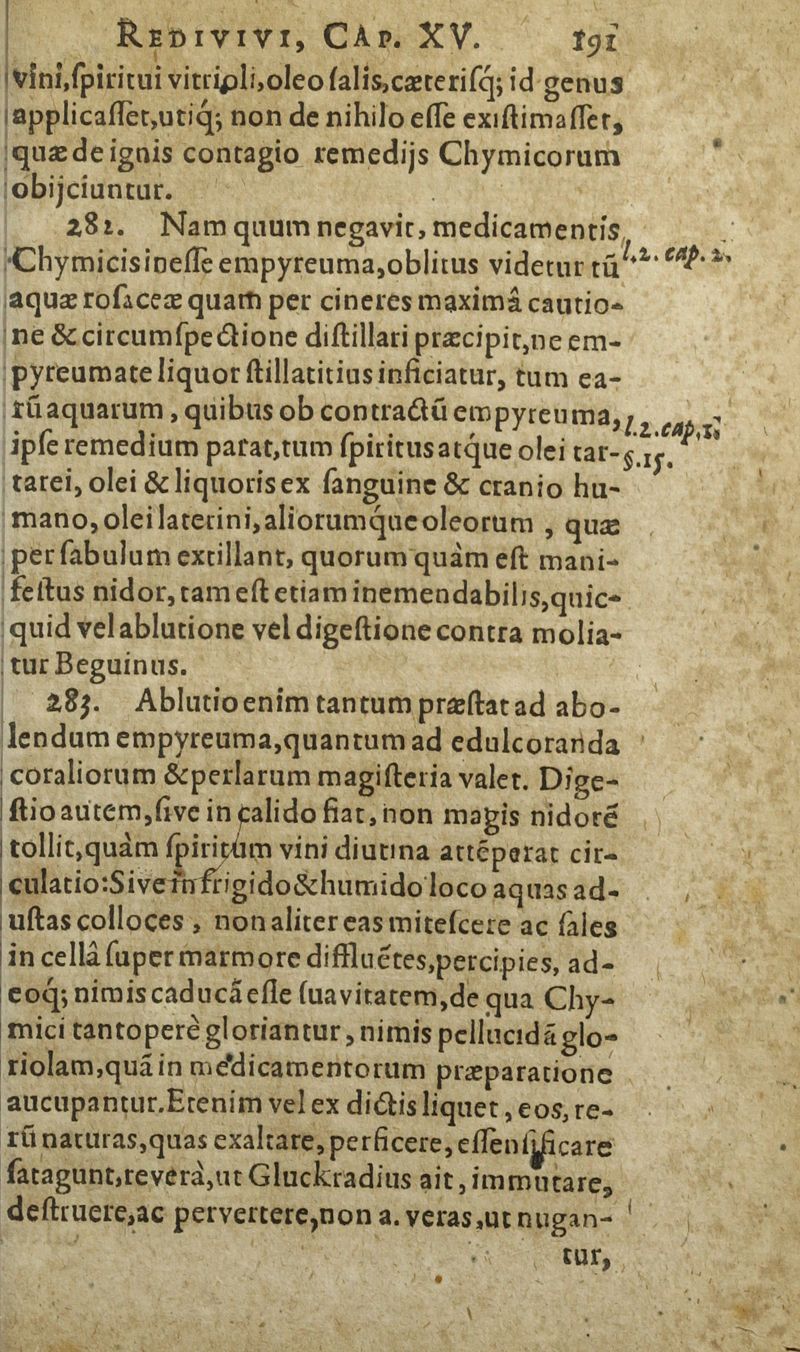 REDIVIVI, CAP. XV. 191
vini,ſpiritui vitrioli,oleo ſalis,cæteriſq; id genus
applicaſſet,utiq; non de nihilo eſſe exiſtimaſſet,
quæ de ignis contagio remedijs Chymicorum
obijciuntur.
282. Nam quum negavit, medicamentis
Chymicis ineſſe empyreuma,oblitus videtur tū l.2. cap. 2.
aquæ roſaceæ quam per cineres maximâ cautio-
ne & circumſpectione diſtillari præcipit,ne em-
pyreumate liquor ſtillatitius inficiatur, tum ea-
rū aquarum, quibus ob contractū empyreuma, l.2.cap.1.
ipſe remedium parat,tum ſpiritus atque olei tar- §.15.
tarei, olei & liquoris ex ſanguine & cranio hu-
mano, olei laterini, aliorumque oleorum , quæ
per ſabulum extillant, quorum quàm eſt mani-
feſtus nidor, tam eſt etiam inemendabilis,quic-
quid vel ablutione vel digeſtione contra molia-
tur Beguinus.
283. Ablutio enim tantum præſtat ad abo-
lendum empyreuma,quantum ad edulcoranda
coraliorum & perlarum magiſteria valet. Dige-
ſtio autem,ſive in calido fiat, non magis nidorē
tollit,quàm ſpiritum vini diutina attēperat cir-
culatio:Sive in frigido & humido loco aquas ad-
uſtas colloces , non aliter eas miteſcere ac ſales
in cellâ ſuper marmore diffluētes,percipies, ad-
eoq; nimis caducā eſſe ſuavitatem,de qua Chy-
mici tantoperè gloriantur, nimis pellucidā glo-
riolam,quā in medicamentorum præparatione
aucupantur.Etenim vel ex dictis liquet, eos, re-
rū naturas,quas exaltare,perficere, eſſentificare
ſatagunt,reverà,ut Gluckradius ait, immutare,
deſtruere,ac pervertere,non a. veras,ut nugan-
tur,